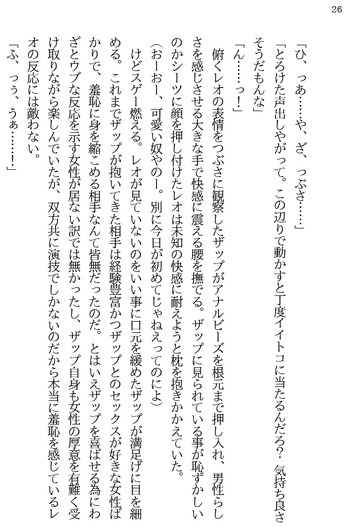 26
「ひ、っぁ……や、ざ、っぷさ……」
「とろけた声出しやがって。この辺りで動かすと丁度イイトコに当たるんだろ？　気持ち良さ
そうだもんな」
「ん……っ！」
　俯くレオの表情をつぶさに観察したザップがアナルビーズを根元まで押し入れ、男性らし
さを感じさせる大きな手で快感に震える腰を撫でる。ザップに見られている事が恥ずかしい
のかシーツに顔を押し付けたレオは未知の快感に耐えようと枕を抱きかかえていた。
（おーおー、可愛い奴やのー。別に今日が初めてじゃねえってのによ）
　けどスゲー燃える。レオが見ていないのをいい事に口元を緩めたザップが満足げに目を細
める。これまでザップが抱いてきた相手は経験豊富かつザップとのセックスが好きな女性ば
かりで、羞恥に身を縮こめる相手なんて皆無だったのだ。とはいえザップを喜ばせる為にわ
ざとウブな反応を示す女性が居ない訳では無かったし、ザップ自身も女性の厚意を有難く受
け取りながら楽しんでいたが、双方共に演技でしかないのだから本当に羞恥を感じているレ
オの反応には敵わない。
「ふ、っぅ、うぁ……！」